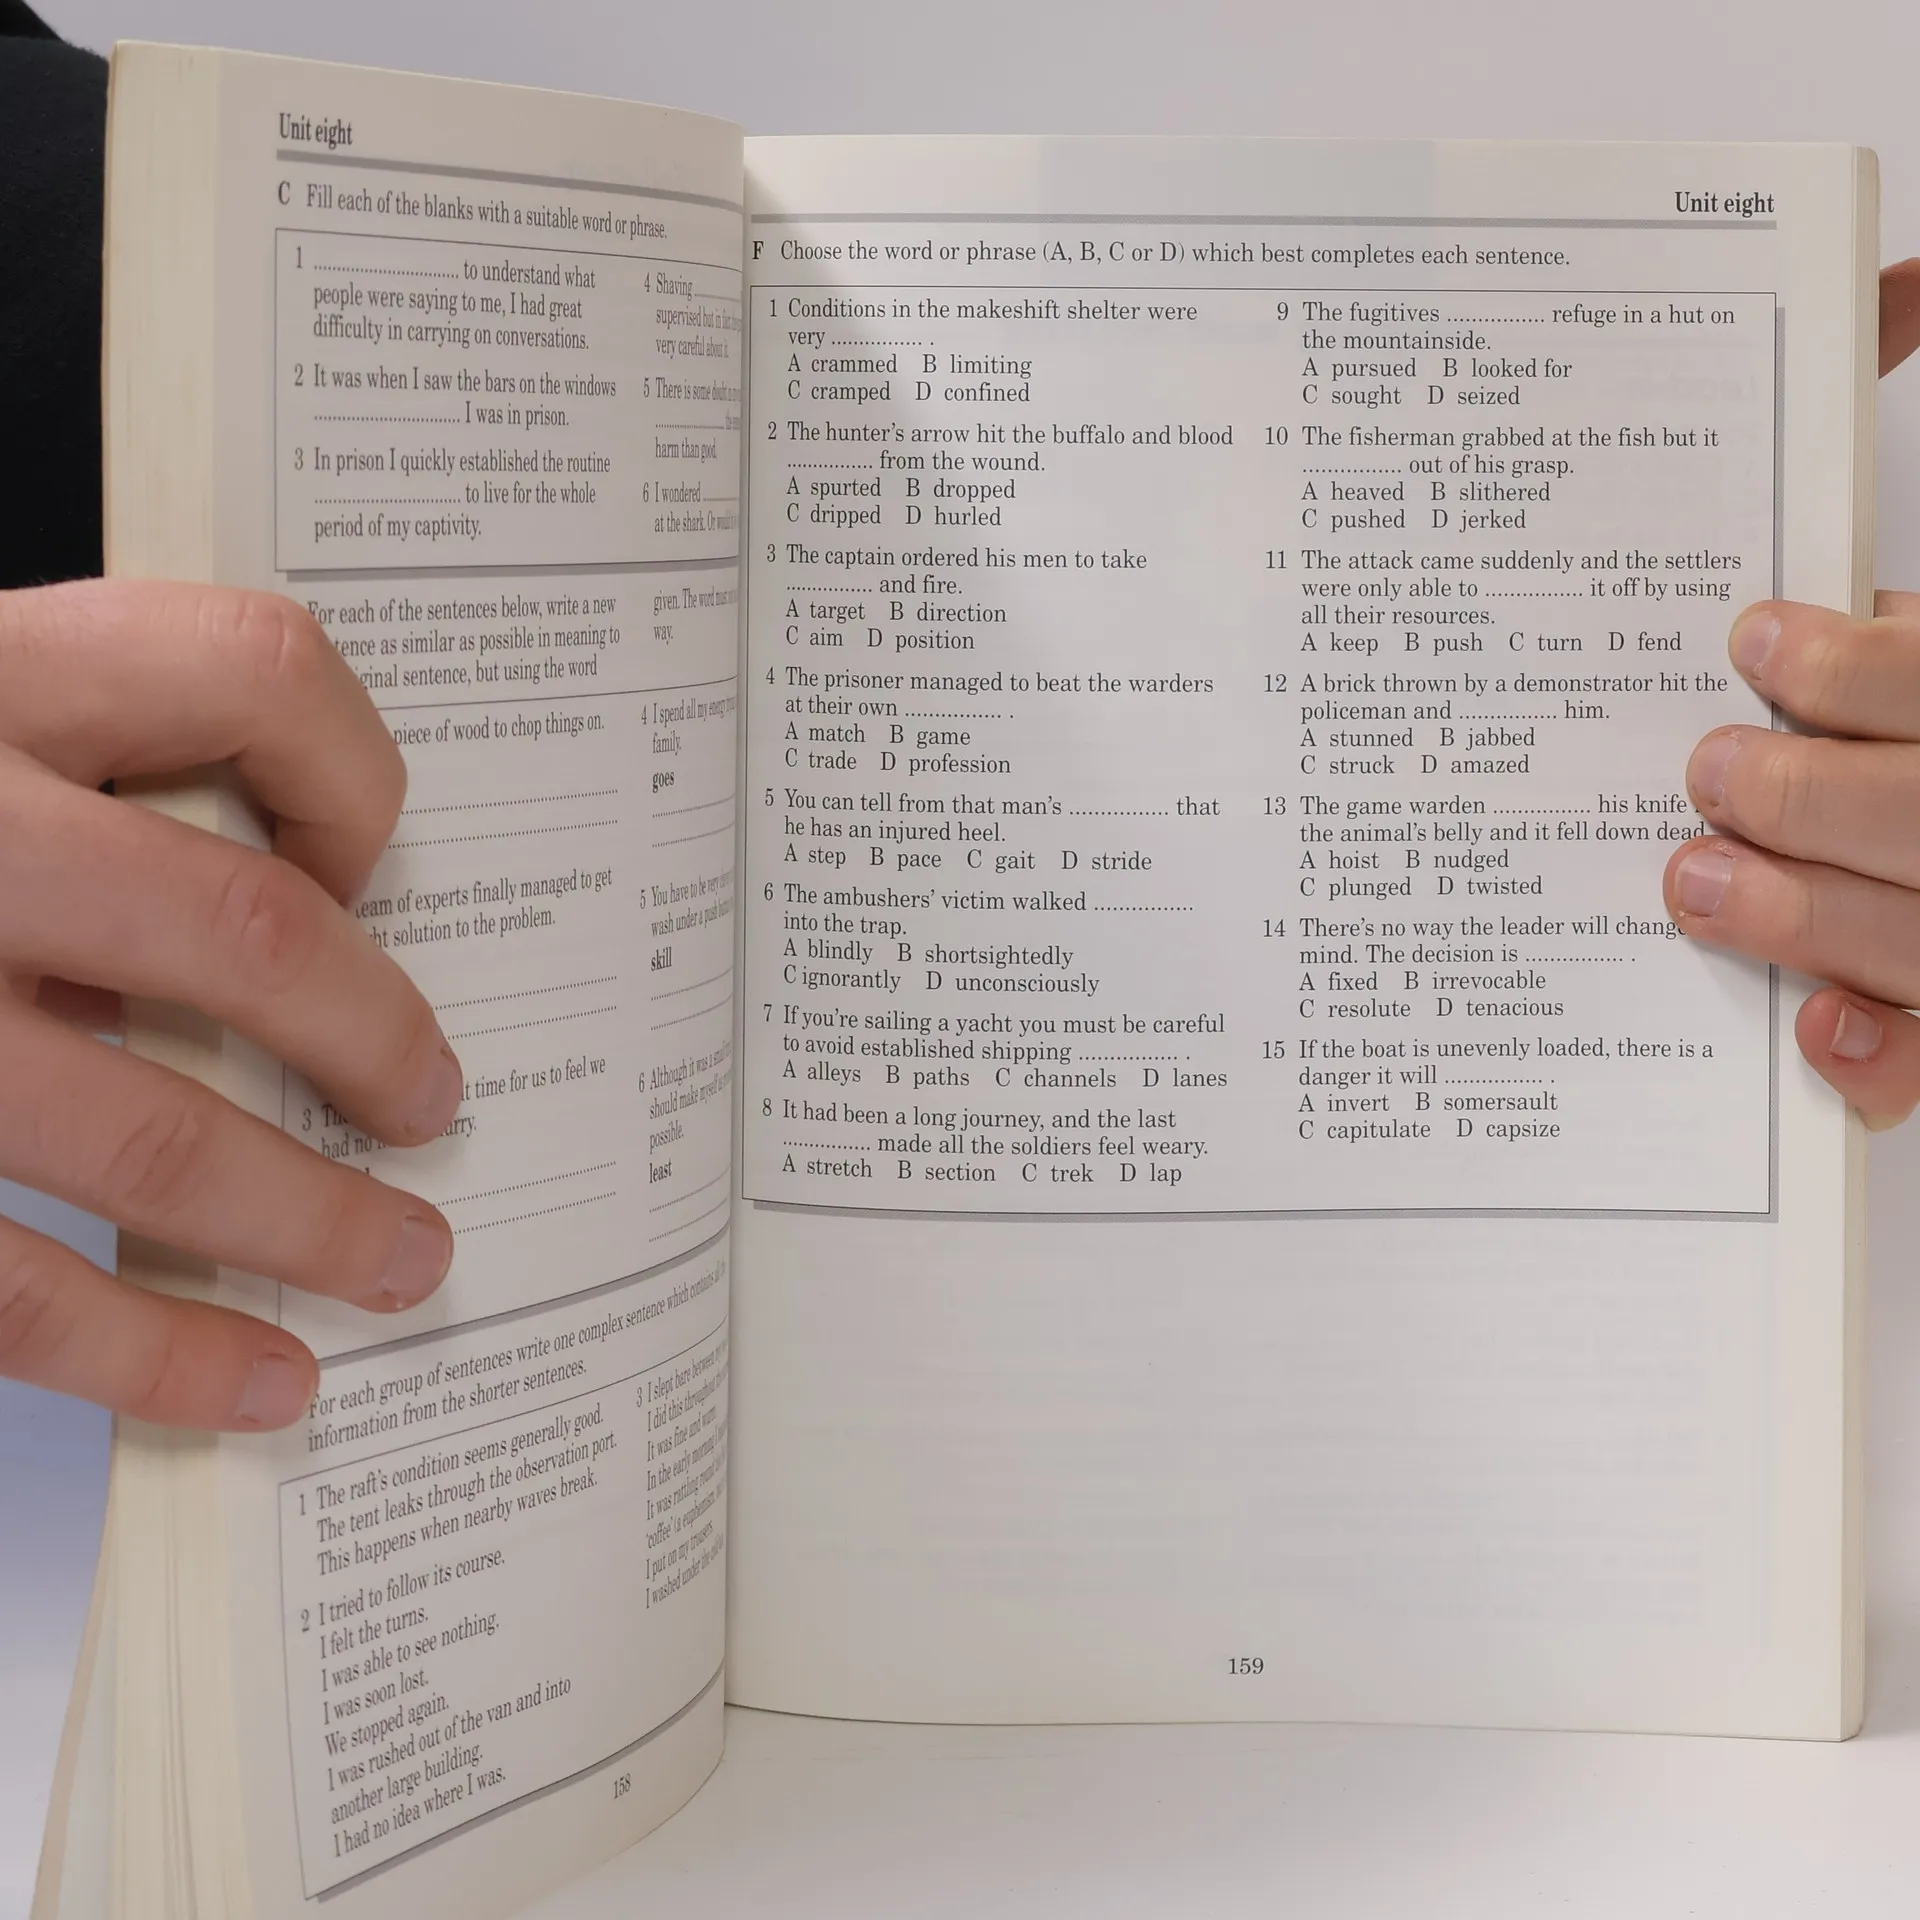 Unit eight
C Fill each of the blanks with a suitable word or phrase.
1 ................................ to understand what
people were saying to me, I had great
difficulty in carrying on conversations.
2 It was when I saw the bars on the windows
................................ I was in prison.
3 In prison I quickly established the routine
................................ to live for the whole
period of my captivity.
4 Shaving
supervised but in fact
very careful about it.
5 There is some doubt
harm than good.
6 I wondered
at the shark. Or
For each of the sentences below, write a new
as similar as possible in meaning to
sentence, but using the word
given. The word must
way.
piece of wood to chop things on.
team of experts finally managed to get
solution to the problem.
3
time for us to feel we
had no
4 I spend all my energy
family.
goes
5 You have to be very
wash under a push
skill
6 Although it was a
should make myself as
possible.
least
For each group of sentences write one complex sentence which contains all the
information from the shorter sentences.
1 The raft's condition seems generally good.
The tent leaks through the observation port.
This happens when nearby waves break.
2 I tried to follow its course.
I felt the turns.
I was able to see nothing.
I was soon lost.
We stopped again.
I was rushed out of the van and into
another large building.
I had no idea where I was.
3 I slept bare between my
I did this throughout the
It was fine and warm.
In the early morning I
It was rattling round
'coffee' (a euphemism,
I put on my trousers.
I washed under the
158
Unit eight
F Choose the word or phrase (A, B, C or D) which best completes each sentence.
1 Conditions in the makeshift shelter were
very ................ .
A crammed B limiting
C cramped D confined
2 The hunter's arrow hit the buffalo and blood
............... from the wound.
A spurted B dropped
C dripped D hurled
3 The captain ordered his men to take
............... and fire.
A target B direction
C aim D position
4 The prisoner managed to beat the warders
at their own ................ .
A match B game
C trade D profession
5 You can tell from that man's ................ that
he has an injured heel.
A step B pace C gait D stride
6 The ambushers' victim walked ................
into the trap.
A blindly B shortsightedly
C ignorantly D unconsciously
7 If you're sailing a yacht you must be careful
to avoid established shipping ................ .
A alleys B paths C channels D lanes
8 It had been a long journey, and the last
............... made all the soldiers feel weary.
A stretch B section C trek D lap
9 The fugitives ................ refuge in a hut on
the mountainside.
A pursued B looked for
C sought D seized
10 The fisherman grabbed at the fish but it
................ out of his grasp.
A heaved B slithered
C pushed D jerked
11 The attack came suddenly and the settlers
were only able to ................ it off by using
all their resources.
A keep B push C turn D fend
12 A brick thrown by a demonstrator hit the
policeman and ................ him.
A stunned B jabbed
C struck D amazed
13 The game warden ................ his knife
the animal's belly and it fell down dead
A hoist B nudged
C plunged D twisted
14 There's no way the leader will change
mind. The decision is ................ .
A fixed B irrevocable
C resolute D tenacious
15 If the boat is unevenly loaded, there is a
danger it will ................ .
A invert B somersault
C capitulate D capsize
159